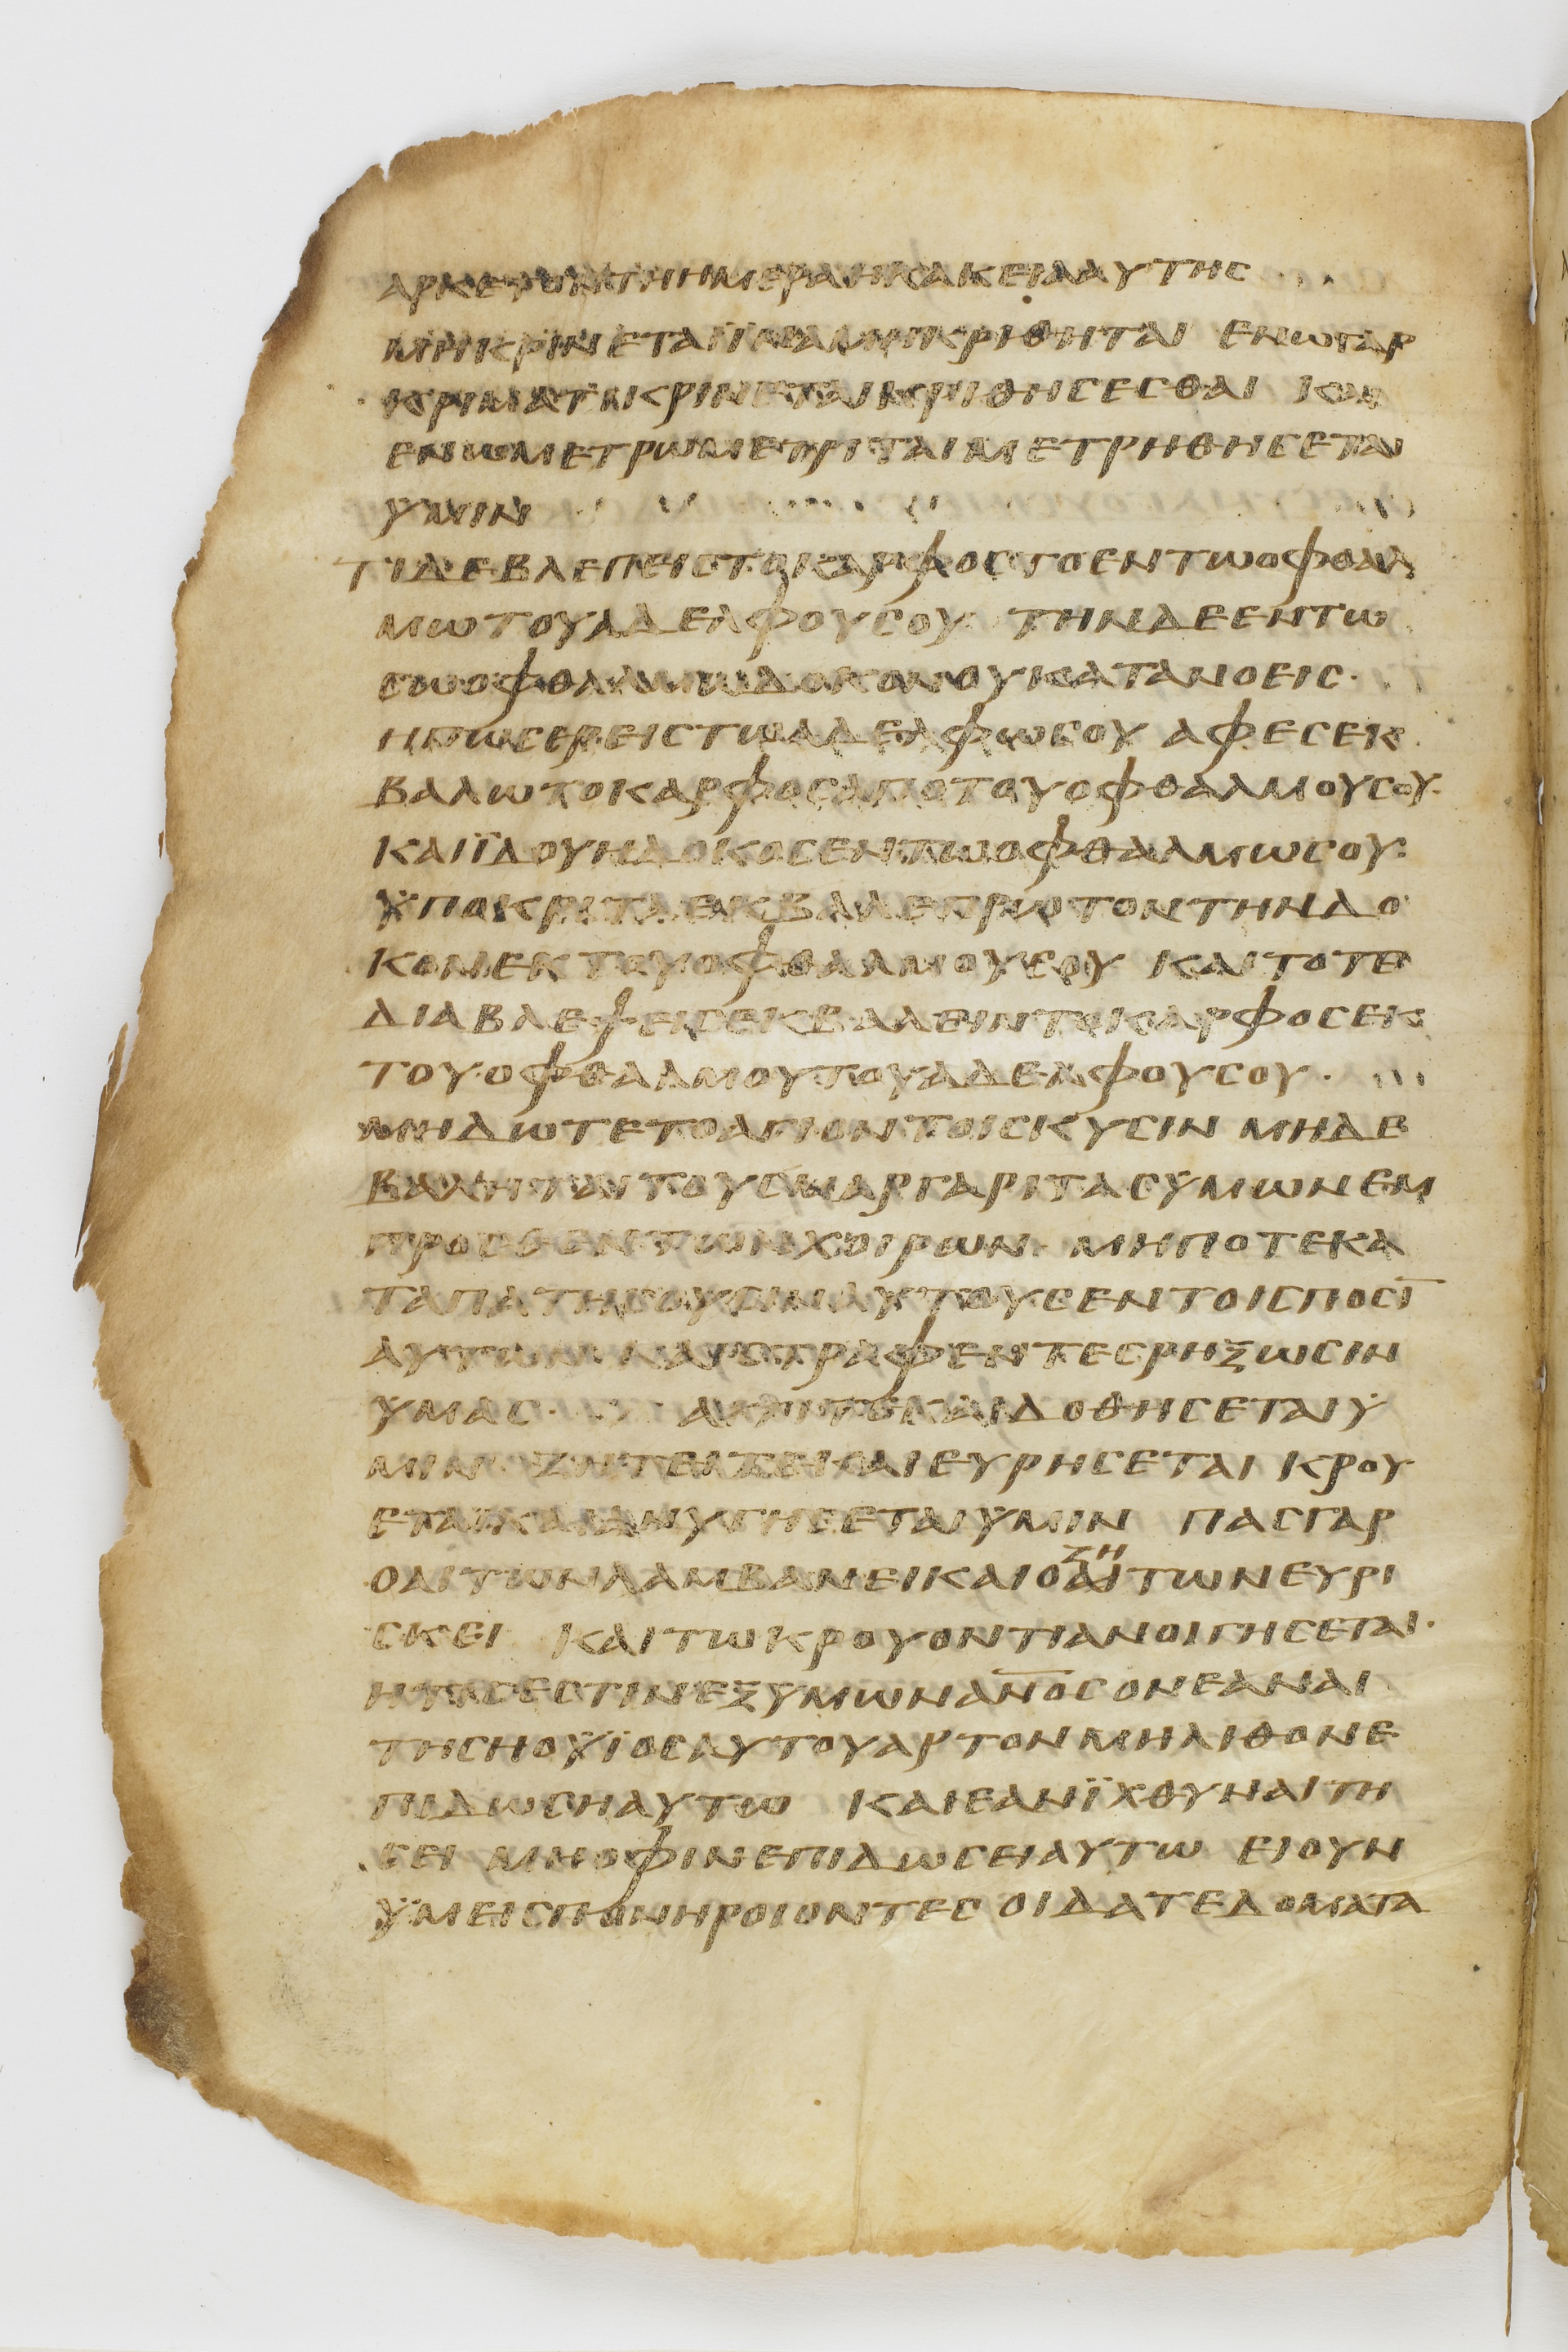 ΑΡΚΕΤΟΝΤΗΗΜΕΡΑΗΚΑΚΕΙΑΑΥΤΗΣ
ΜΗΚΡΙΝΕΤΑΙΙΝΑΜΗΚΡΙΘΗΤΑΙ ΕΝΩΓΑΡ
ΚΡΙΜΑΤΙΚΡΙΝΕΤΑΙΚΡΙΘΗΣΕΣΘΑΙ ΚΑΙ
ΕΝΩΜΕΤΡΩΜΕΤΡΙΤΑΙΜΕΤΡΗΘΗΣΕΤΑΙ
ΥΜΙΝ
ΤΙΔΕΒΛΕΠΕΙΣΤΟΚΑΡΦΟΣΤΟΕΝΤΩΟΦΘΑΛ
ΜΩΤΟΥΑΔΕΛΦΟΥΣΟΥ ΤΗΝΔΕΕΝΤΩ
ΣΩΟΦΘΑΛΜΩΔΟΚΟΝΟΥΚΑΤΑΝΟΕΙΣ
ΗΠΩΣΕΡΕΙΣΤΩΑΔΕΛΦΩΣΟΥ ΑΦΕΣΕΚ
ΒΑΛΩΤΟΚΑΡΦΟΣΑΠΟΤΟΥΟΦΘΑΛΜΟΥΣΟΥ
ΚΑΙΪΔΟΥΗΔΟΚΟΣΕΝΤΩΟΦΘΑΛΜΩΣΟΥ
ΥΠΟΚΡΙΤΑΕΚΒΑΛΕΠΡΩΤΟΝΤΗΝΔΟ
ΚΟΝΕΚΤΟΥΟΦΘΑΛΜΟΥΣΟΥ ΚΑΙΤΟΤΕ
ΔΙΑΒΛΕΨΕΙΣΕΚΒΑΛΕΙΝΤΟΚΑΡΦΟΣΕΚ
ΤΟΥΟΦΘΑΛΜΟΥΤΟΥΑΔΕΛΦΟΥΣΟΥ
ΜΗΔΩΤΕΤΟΑΓΙΟΝΤΟΙΣΚΥΣΙΝ ΜΗΔΕ
ΒΑΛΗΤΑΙΤΟΥΣΜΑΡΓΑΡΙΤΑΣΥΜΩΝΕΜ
ΠΡΟΣΘΕΝΤΩΝΧΟΙΡΩΝ ΜΗΠΟΤΕΚΑ
ΤΑΠΑΤΗΣΟΥΣΙΝΑΥΤΟΥΣΕΝΤΟΙΣΠΟΣΙ̅
ΑΥΤΩΝΚΑΙΣΤΡΑΦΕΝΤΕΣΡΗΞΩΣΙΝ
ΥΜΑΣ ΔΟΘΗΣΕΤΑΙΫ
ΜΙΝ ΖΗΤΕΙΤΕΚΑΙΕΥΡΗΣΕΤΑΙ ΚΡΟΥ
ΕΤΑΙΚΑΙΑΝΥΓΗΣΕΤΑΙΥΜΙΝ ΠΑΣΓΑΡ
ΟΑΙΤΩΝΛΑΜΒΑΝΕΙΚΑΙΟΖΗΤΩΝΕΥΡΙ
ΣΚΕΙ ΚΑΙΤΩΚΡΟΥΟΝΤΙΑΝΟΙΓΗΣΕΤΑΙ
ΗΤΙΣΕΣΤΙΝΕΞΥΜΩΝΑΝ̅Ο̅Σ̅ΟΝΕΑΝΑΙ
ΤΗΣΗΟΥΪΟΣΑΥΤΟΥΑΡΤΟΝΜΗΛΙΘΟΝΕ
ΠΙΔΩΣΗΑΥΤΩ ΚΑΙΕΑΝΪΧΘΥΝΑΙΤΗ
ΣΗ ΜΗΟΦΙΝΕΠΙΔΩΣΗΑΥΤΩ ΕΙΟΥΝ
ΫΜΕΙΣΠΟΝΗΡΟΙΟΝΤΕΣΟΙΔΑΤΕΔΟΜΑΤΑ